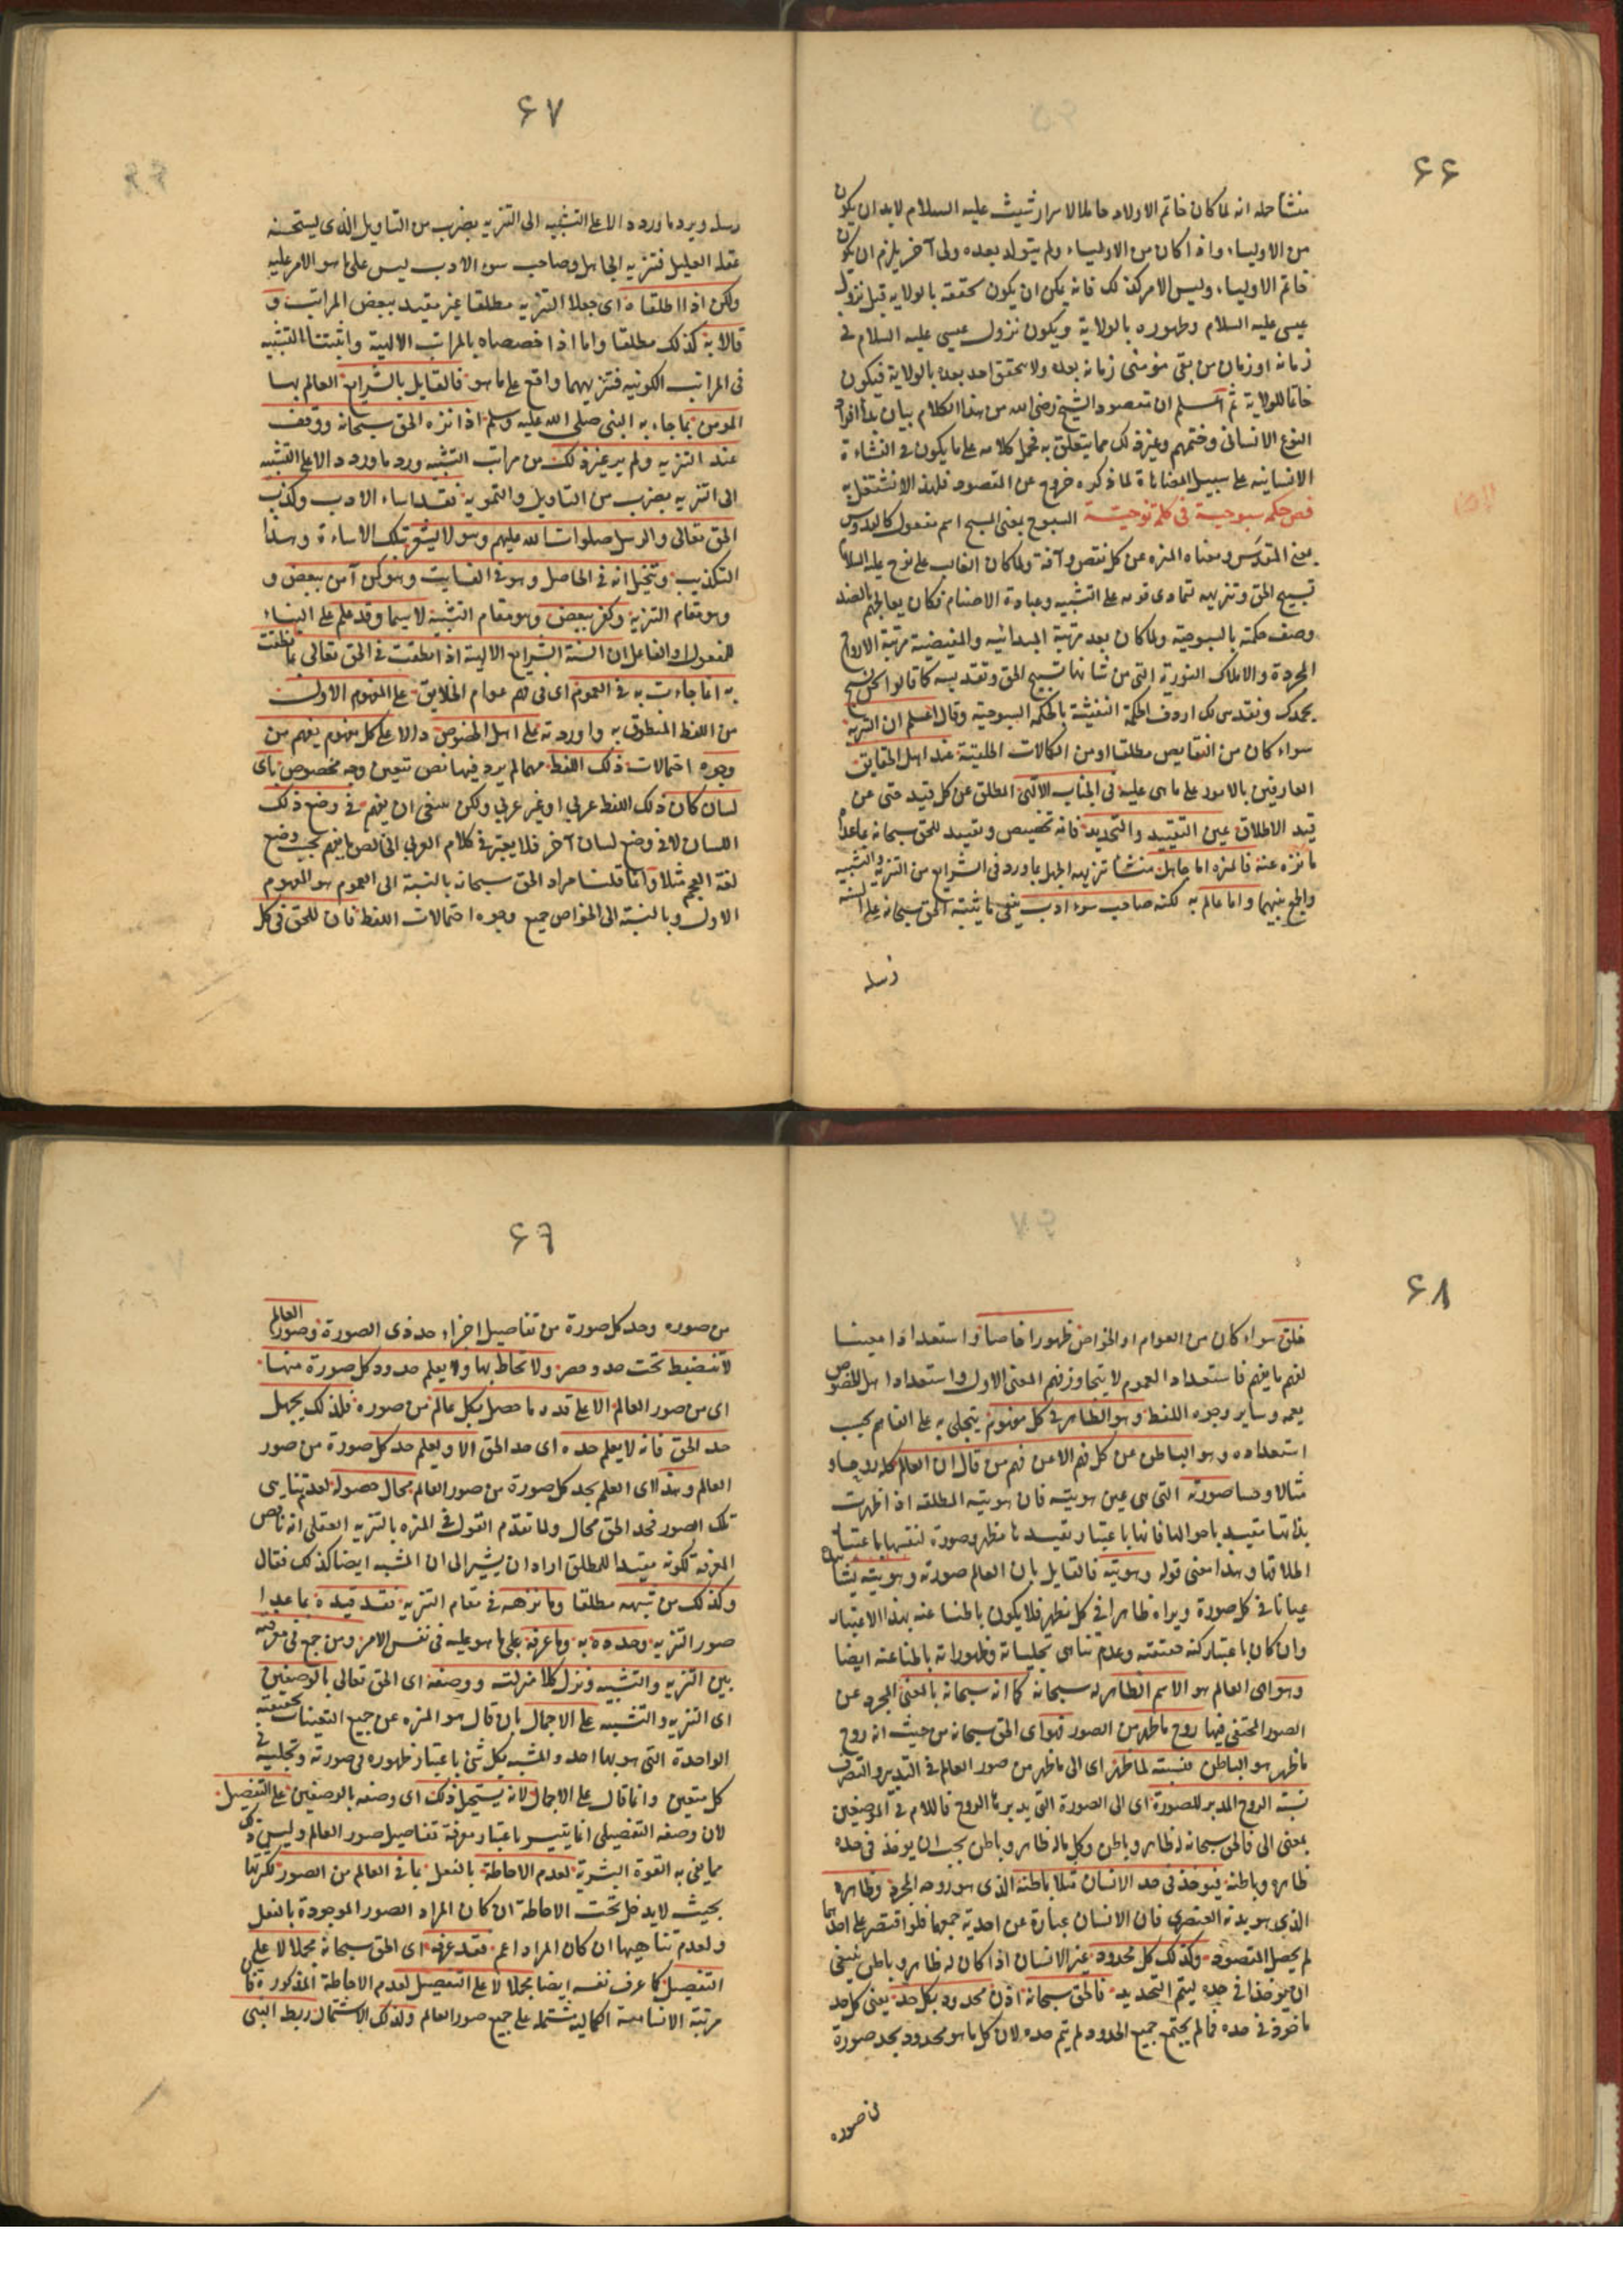 ٦٦
منشأ حله انه لما كان خاتم الاولاد حاملا لاسرار شيث عليه السلام لابد ان يكون
من الاولياء واذا كان من الاولياء ولم يتولد بعده ولى آخر يلزم ان يكون
خاتم الاولياء وليس الامر كذلك فانه يمكن ان يكون تحققه بالولاية قبل نزول
عيسى عليه السلام وظهوره بالولاية ويكون نزول عيسى عليه السلام فى
زمانه او زمان من بقى مؤمنى زمانه بعده ولا يتحقق احد بعده بالولاية فيكون
خاتما للولاية ثم اعلم ان مقصود الشيخ رضى الله من هذا الكلام بيان بدأ افراد
النوع الانسانى وختمهم وغير ذلك مما يتعلق به فحمل كلامه على ما يكون فى النشاءة
الانسانيه على سبيل المضاهاة لما ذكره خروج عن المقصود فلهذا لا نشتغل به
فص حكمة سبوحية فى كلمة نوحية السبوح بمعنى المسبح اسم مفعول كالقدوس
بمعنى المقدس ومعناه المنزه عن كل نقص وآفة ولما كان الغالب على نوح عليه السلام
تسبيح الحق وتنزيهه لتمادى قومه على التشبيه وعبادة الاصنام فكان يعالجهم بالضد
وصف حكمته بالسبوحية ولما كان بعد مرتبة المبدائيه والمفيضية مرتبة الارواح
المجردة والاملاك النورية التى من شانها تسبيح الحق وتقديسه كما قالوا نحن نسبح
بحمدك ونقدس لك اردف الحكمة النفثية بالحكمة السبوحية وقال اعلم ان التنزيه
سواء كان من النقايص مطلقا او من الكمالات الخلقية عند اهل الحقايق
العارفين بالامور على ماهى عليه فى الجناب الالهى المطلق عن كل قيد حتى عن
قيد الاطلاق عين التقييد والتحديد فانه تخصيص وتقييد للحق سبحانه بماعدا
ما نزه عنه فالمنزه اما جاهل منشأ تنزيهه الجهل بما ورد فى الشرايع من التنزيه والتشبيه
والجمع بينهما واما عالم به لكنه صاحب سوء ادب ينفى ما يثبته الحق سبحانه على السنة
رسله
٦٧
رسله ويرد ما ورد دالا على التشبيه الى التنزيه بضرب من التاويل الذى يستحسنه
عقله العليل فتنزيه الجاهل وصاحب سوء الادب ليس على ما هو الامر عليه
ولكن اذا اطلقاه اى جعلا التنزيه مطلقا غير مقيد ببعض المراتب و
قالا به كذلك مطلقا واما اذا خصصاه بالمراتب الالهية واثبتتا التشبيه
فى المراتب الكونيه فتنزيههما واقع على ما هو فالقايل بالشرايع العالم بها
المومن بما جاء به النبى صلى الله عليه وسلم اذا نزه الحق سبحانه ووقف
عند التنزيه ولم ير غير ذلك من مراتب التشبيه ورد ما ورد دالا على التشبيه
الى التنزيه بضرب من التاويل والتمويه فقد اساء الادب وكذب
الحق تعالى والرسل صلوات الله عليهم وهو لا يشعر بتلك الاساءة وهذا
التكذيب ويتخيل انه فى الحاصل وهو فى الفايت وهو كمن آمن ببعض و
هو مقام التنزيه وكفر ببعض وهو مقام التشبيه لا سيما وقد علم على البناء
للمفعول والفاعل ان السنة الشرايع الالهية اذا نطقت فى الحق تعالى بما نطقت
به انما جاءت به فى العموم اى فى فهم عوام الخلايق على المفهوم الاول
من اللفظ المنطوق به واوردته على اهل الخصوص دالا على كل مفهوم يفهم من
وجوه احتمالات ذلك اللفظ مهما لم يرد فيها نص بتعيين وجه مخصوص باى
لسان كان ذلك اللفظ عربي او غير عربي ولكن ينبغى ان يفهم فى وضع ذلك
اللسان لا فى وضع لسان آخر فلا يعتبر فى كلام العربى الخالص ما يفهم بحسب وضع
لغة العجم مثلا وانما قلنا مراد الحق سبحانه بالنسبة الى العموم هو المفهوم
الاول وبالنسبة الى الخواص جميع وجوه احتمالات اللفظ فان للحق فى كل
٦٨
خلق سواء كان من العوام او الخواص ظهورا خاصا واستعدادا معينا
لفهم ما يفهم فاستعداد العموم لا يتجاوز فهم المعنى الاول واستعداد اهل الخصوص
يعمه وساير وجوه اللفظ وهو الظاهر فى كل مفهوم يتجلى به على الفاهم بحسب
استعداده وهو الباطن عن كل فهم الا عن فهم من قال ان العالم كله روحا و
مثالا وحسا صورته التى هى عين هويته فان هويته المطلقة اذا ظهرت
بذاتها متقيد باحوالها فانها باعتبار تقيدها مظهر وصورة لنفسها باعتبار
اطلاقها وهذا معنى قوله وهويته فالقايل بان العالم صورته وهويته يشاهده
عيانا فى كل صورة ويراه ظاهرا فى كل مظهر فلا يكون باطنا عنه بهذا الاعتبار
وان كان باعتبار كنه حقيقته وعدم تناهى تجلياته وظهوراته باطنا عنه ايضا
وهو اى العالم هو الاسم الظاهر له سبحانه كما انه سبحانه بالمعنى المجرد عن
الصور المختفى فيها روح ما ظهر من الصور فهو اى الحق سبحانه من حيث انه روح
ما ظهر هو الباطن فنسبته لما ظهر اى الى ما ظهر من صور العالم فى التدبير والتصرف
نسبة الروح المدبر للصورة اى الى الصورة التى يدبرها الروح فاللام فى الموضعين
بمعنى الى فالحق سبحانه له ظاهر وباطن وكل ماله ظاهر وباطن يجب ان يوخذ فى حده
ظاهره وباطنه فيوخذ فى حد الانسان مثلا باطنه الذى هو روحه المجرد وظاهره
الذى هو بدنه العنصرى فان الانسان عبارة عن احدية جمعهما فلو اقتصر على احدهما
لم يحصل المقصود وكذلك كل محدود غير الانسان اذا كان له ظاهر وباطن ينبغى
ان يوخذا فى حده ليتم التحديد فالحق سبحانه اذن محدود بكل حد يعنى كل حد
ماخوذ فى حده فما لم يجتمع جميع الحدود لم يتم حده لان كل ما هو محدود بحد صورة
من صوره
٦٩
من صوره وحد كل صورة من تفاصيل اجزاء حد ذى الصورة وصور العالم
لا تنضبط تحت حد وحصر ولا تحاط بها ولا يعلم حدود كل صورة منها
اى من صور العالم الا على قدر ما حصل بكل عالم من صوره فلذلك يجهل
حد الحق فانه لا يعلم حده اى حد الحق الا ويعلم حد كل صورة من صور
العالم وهذا اى العلم بحد كل صورة من صور العالم محال حصوله لعدم تناهى
تلك الصور فحد الحق محال ولما تقدم القول فى المنزه بالتنزيه العقلى انه ناقص
المعرفة لكونه مقيدا للمطلق اراد ان يشير الى ان المشبه ايضا كذلك فقال
وكذلك من شبهه مطلقا وما نزهه فى مقام التنزيه فقد قيده بما عدا
صور التنزيه وحدده به وما عرفه على ما هو عليه فى نفس الامر ومن جمع فى معرفته
بين التنزيه والتشبيه ونزل كلا منزلته ووصفه اى الحق تعالى بالوصفين
اى التنزيه والتشبيه على الاجمال بان قال هو المنزه عن جميع التعينات بحقيقته
الواحدة التى هو بها احد والمشبه بكل شئ باعتبار ظهوره فى صورته وتجليه فى
كل متعين وانما قال على الاجمال لانه يستحيل ذلك اى وصفه بالوصفين على التفصيل
لان وصفه التفصيلى انما يتيسر باعتبار معرفة تفاصيل صور العالم وليس ذلك
مما يفى به القوة البشرية لعدم الاحاطة بالفعل بما فى العالم من الصور لكثرتها
بحيث لا يدخل تحت الاحاطة ان كان المراد الصور الموجودة بالفعل
ولعدم تناهيها ان كان المراد اعم فقد عرفه اى الحق سبحانه مجملا لا على
التفصيل كما عرف نفسه ايضا مجملا لا على التفصيل لعدم الاحاطة المذكورة فان
مرتبة الانسانية الكمالية مشتملة على جميع صور العالم ولذلك الاشتمال ربط النبى